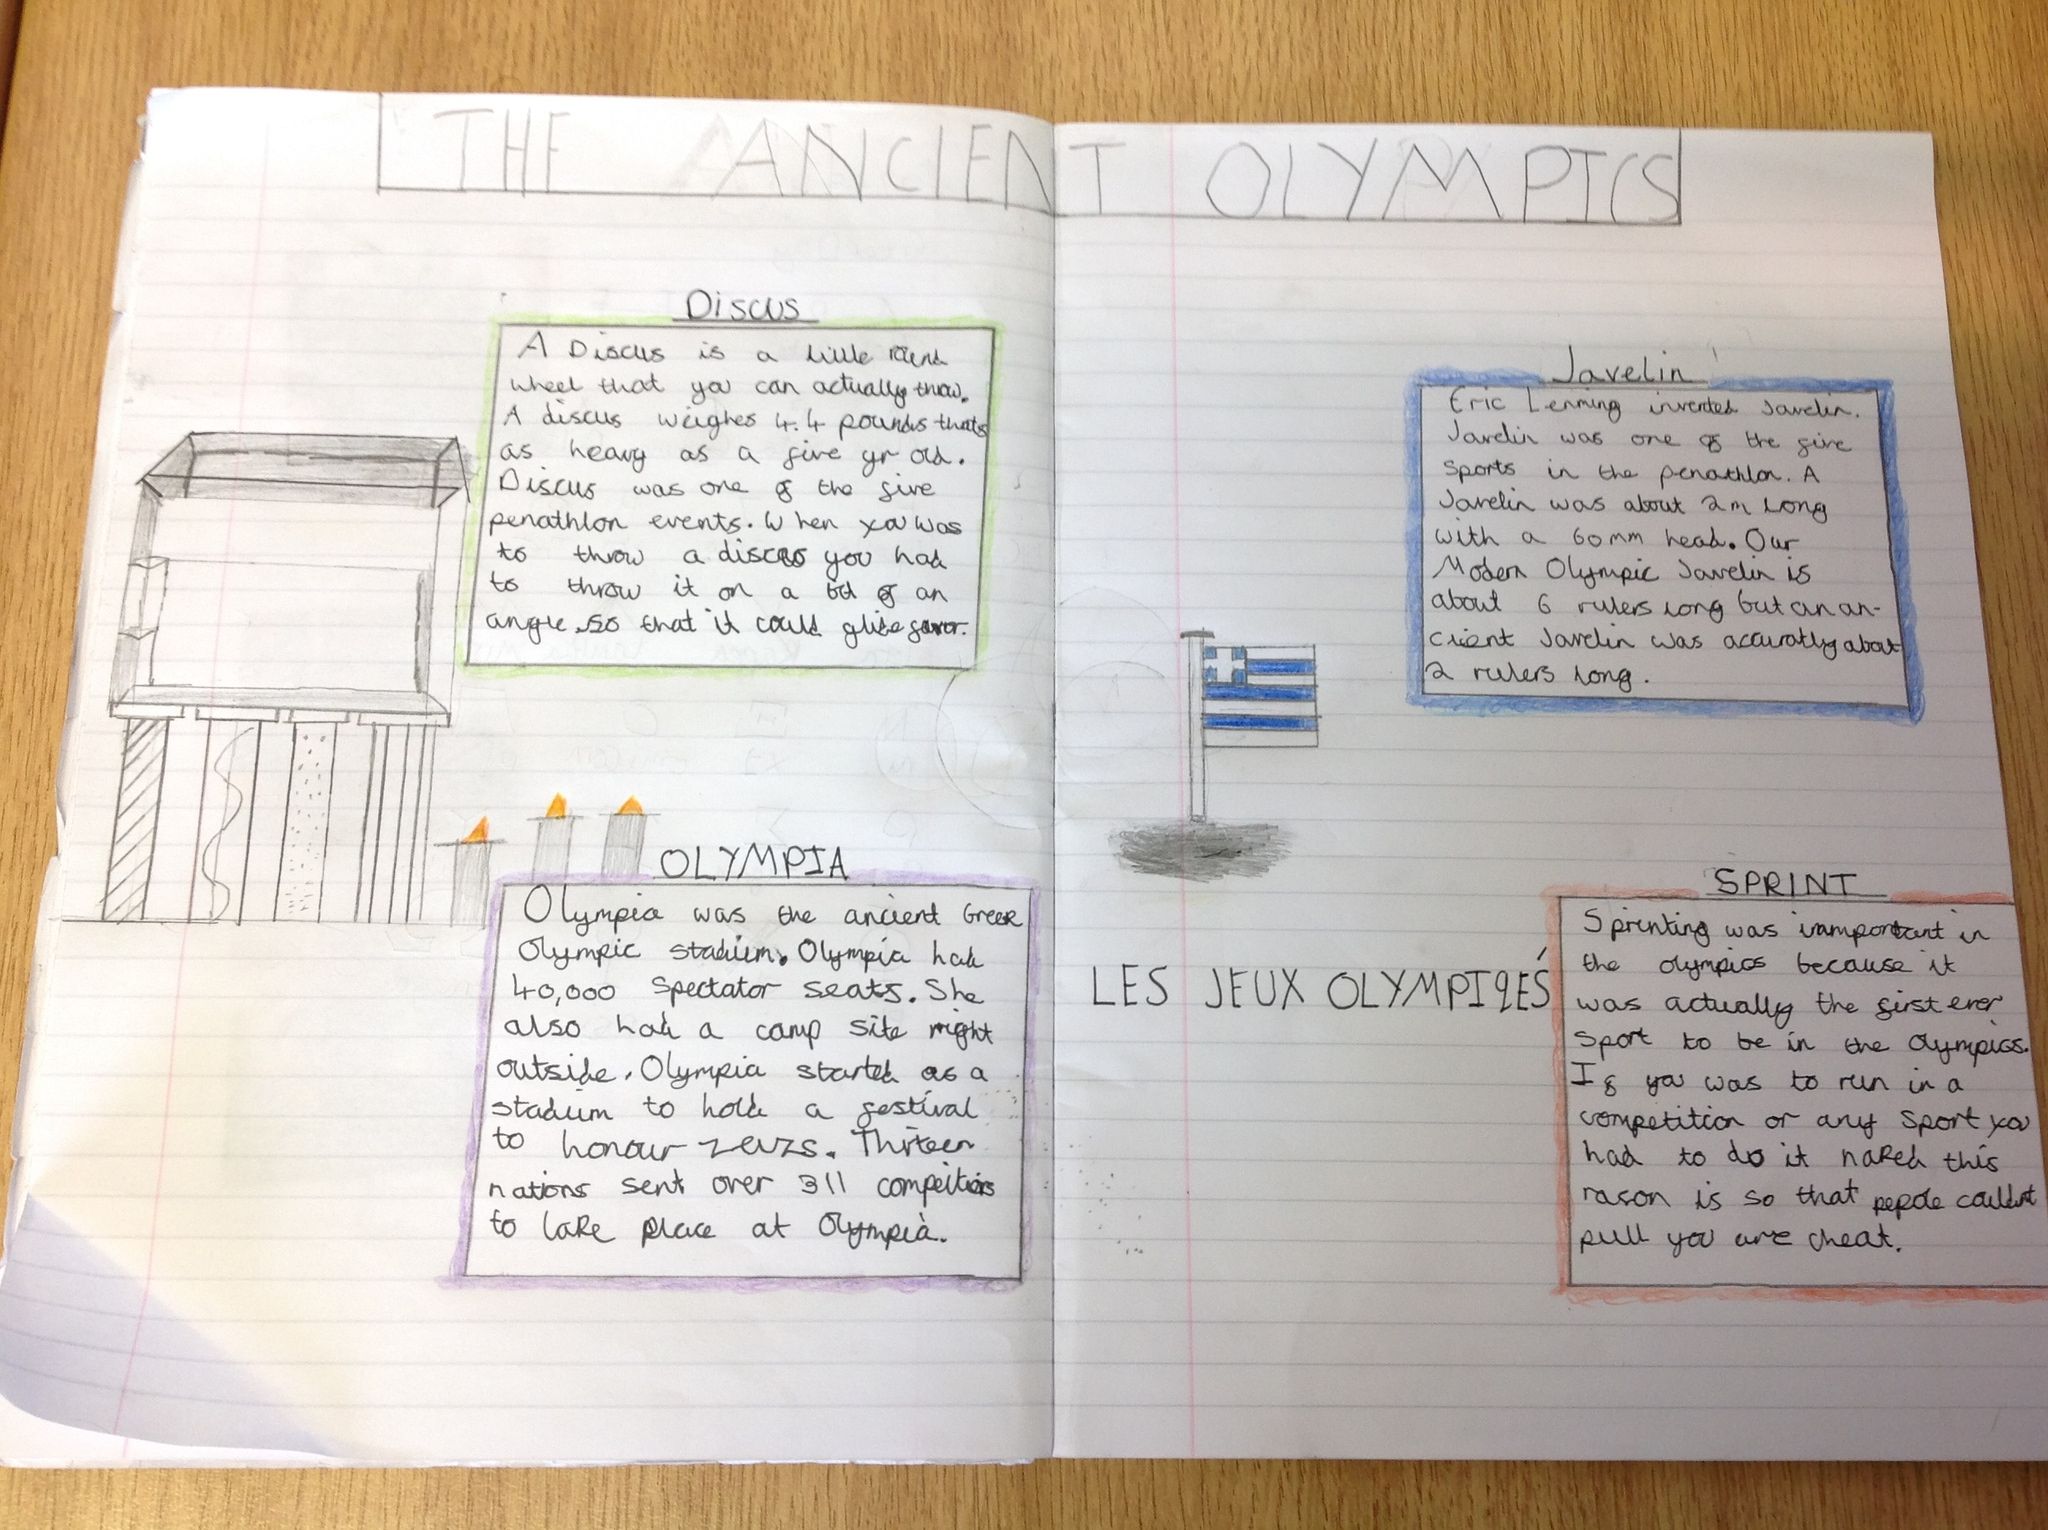 THE ANCIENT OLYMPICS
Discus
A Discus is a little round
wheel that you can actually throw.
A discus weighes 4.4 pounds thats
as heavy as a five yr old.
Discus was one of the five
penathlon events. When you was
to throw a discus you had
to throw it on a bit of an
angle so that it could glide
OLYMPIA
Olympia was the ancient Greek
Olympic stadium. Olympia had
40,000 spectator seats. She
also had a camp site right
outside. Olympia started as a
stadium to hold a festival
to honour zeus. Thirteen
nations sent over 311
to take place at Olympia.
Javelin
Eric Lemming invented Javelin.
Javelin was one of the five
sports in the penathlon. A
Javelin was about 2m long
with a 60mm head. Our
Modern Olympic Javelin is
about 6 rulers long but an an-
cient Javelin was accuratly about
2 rulers long.
LES JEUX OLYMPIQES
SPRINT
Sprinting was inamportant in
the olympics because it
was actually the first ever
sport to be in the Olympics.
If you was to run in a
competition or any sport you
had to do it naked this
rason is so that pepole couldnt
pull you are cheat.